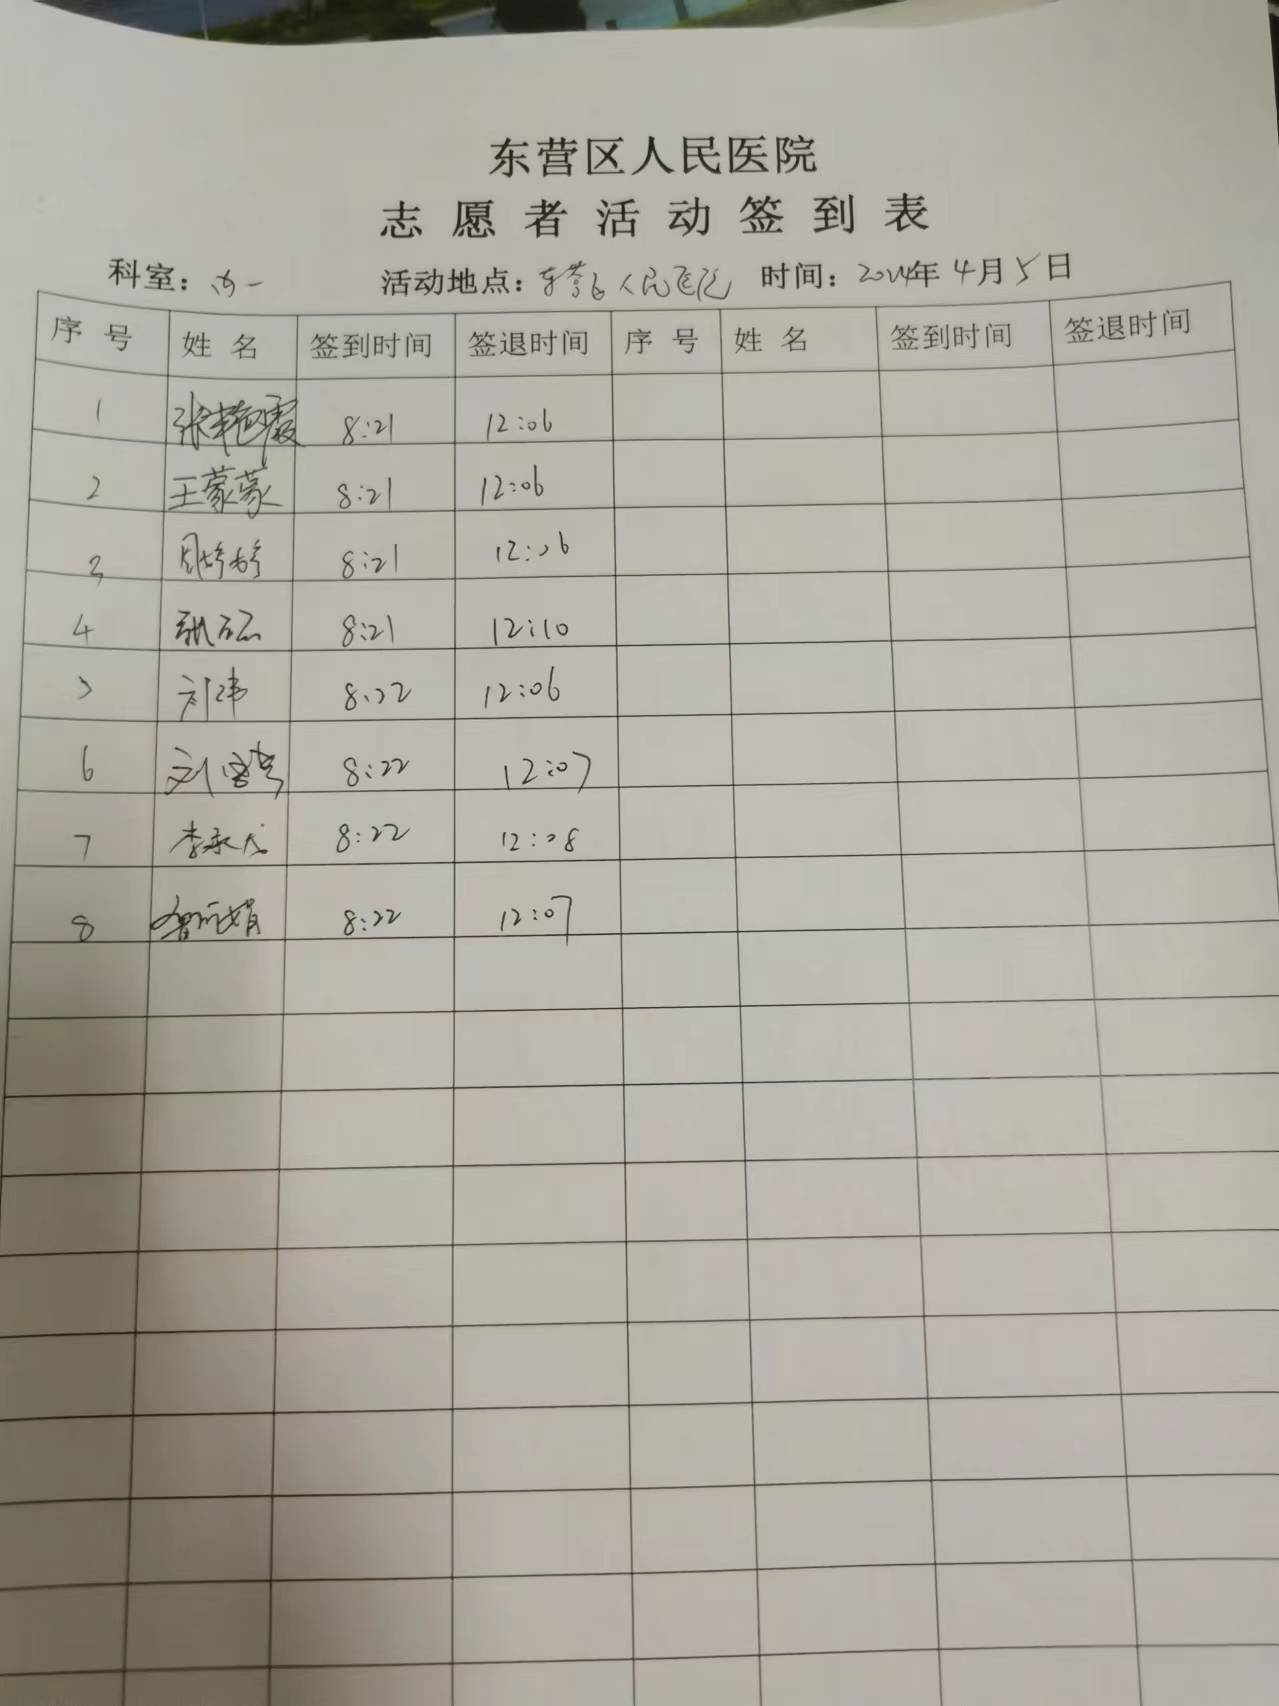 东营区人民医院
志愿者活动签到表
科室： 活动地点：东营区人民医院 时间：2024年4月5日
序号 姓名 签到时间 签退时间 序号 姓名 签到时间 签退时间
1 张艳霞 8:21 12:06
2 王蒙蒙 8:21 12:06
3 周婷婷 8:21 12:06
4 张磊 8:21 12:10
5 刘伟 8:22 12:06
6 刘 8:22 12:07
7 李 8:22 12:08
8 娟 8:22 12:07